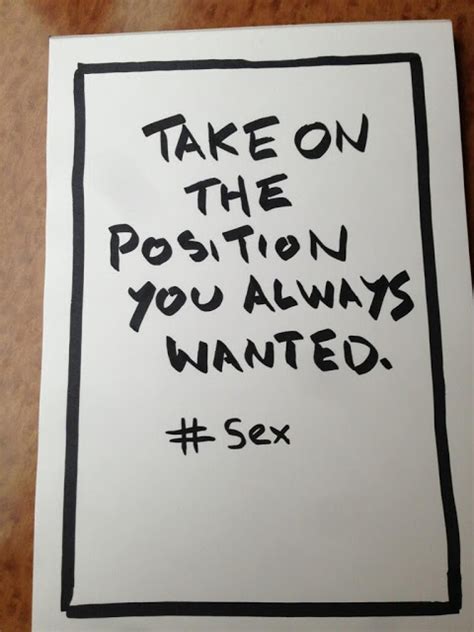 TAKE ON
THE
POSITION
YOU ALWAYS
WANTED.
# Sex